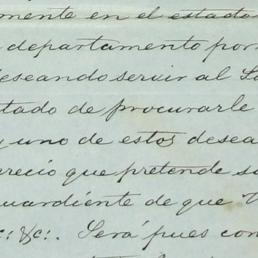 mente en el estado
departamento por
deseando servir al
tado de procurarle
y uno de estos desea
precio que pretende
guardiente de que
c: &c:. Será pues con